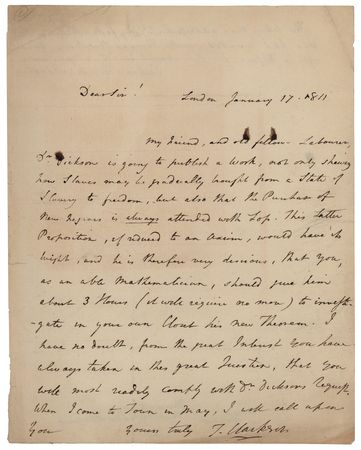 Dear Sir! London January 17. 1811
My Friend, and old fellow-Labourer,
Dr. Dickson is going to publish a Work, not only shewing
how Slaves may be gradually brought from a State of
Slavery to freedom, but also that the Purchase of
New Negroes is always attended with Loss. This latter
Proposition, if reduced to an Axiom, would have its
Weight, and he is therefore very desirous, that You,
as an able Mathematician, should give him
about 3 Hours (it will require no more) to investi-
gate in your own Closet his new Theorem. I
have no doubt, from the great Interest You have
always taken in this great Question, that you
will most readily comply with Dr. Dicksons Request.
When I come to Town in May, I will call upon
You Yours truly T. Clarkson